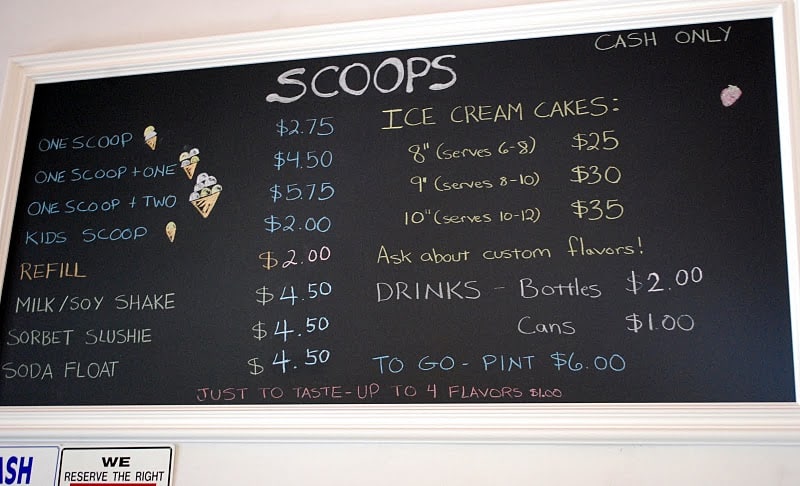 CASH ONLY
SCOOPS
ONE SCOOP $2.75
ONE SCOOP + ONE $4.50
ONE SCOOP + TWO $5.75
KIDS SCOOP $2.00
REFILL $2.00
MILK/SOY SHAKE $4.50
SORBET SLUSHIE $4.50
SODA FLOAT $4.50
ICE CREAM CAKES:
8" (serves 6-8) $25
9" (serves 8-10) $30
10" (serves 10-12) $35
Ask about custom flavors!
DRINKS - Bottles $2.00
Cans $1.00
TO GO - PINT $6.00
JUST TO TASTE - UP TO 4 FLAVORS $1.00
WE
RESERVE THE RIGHT